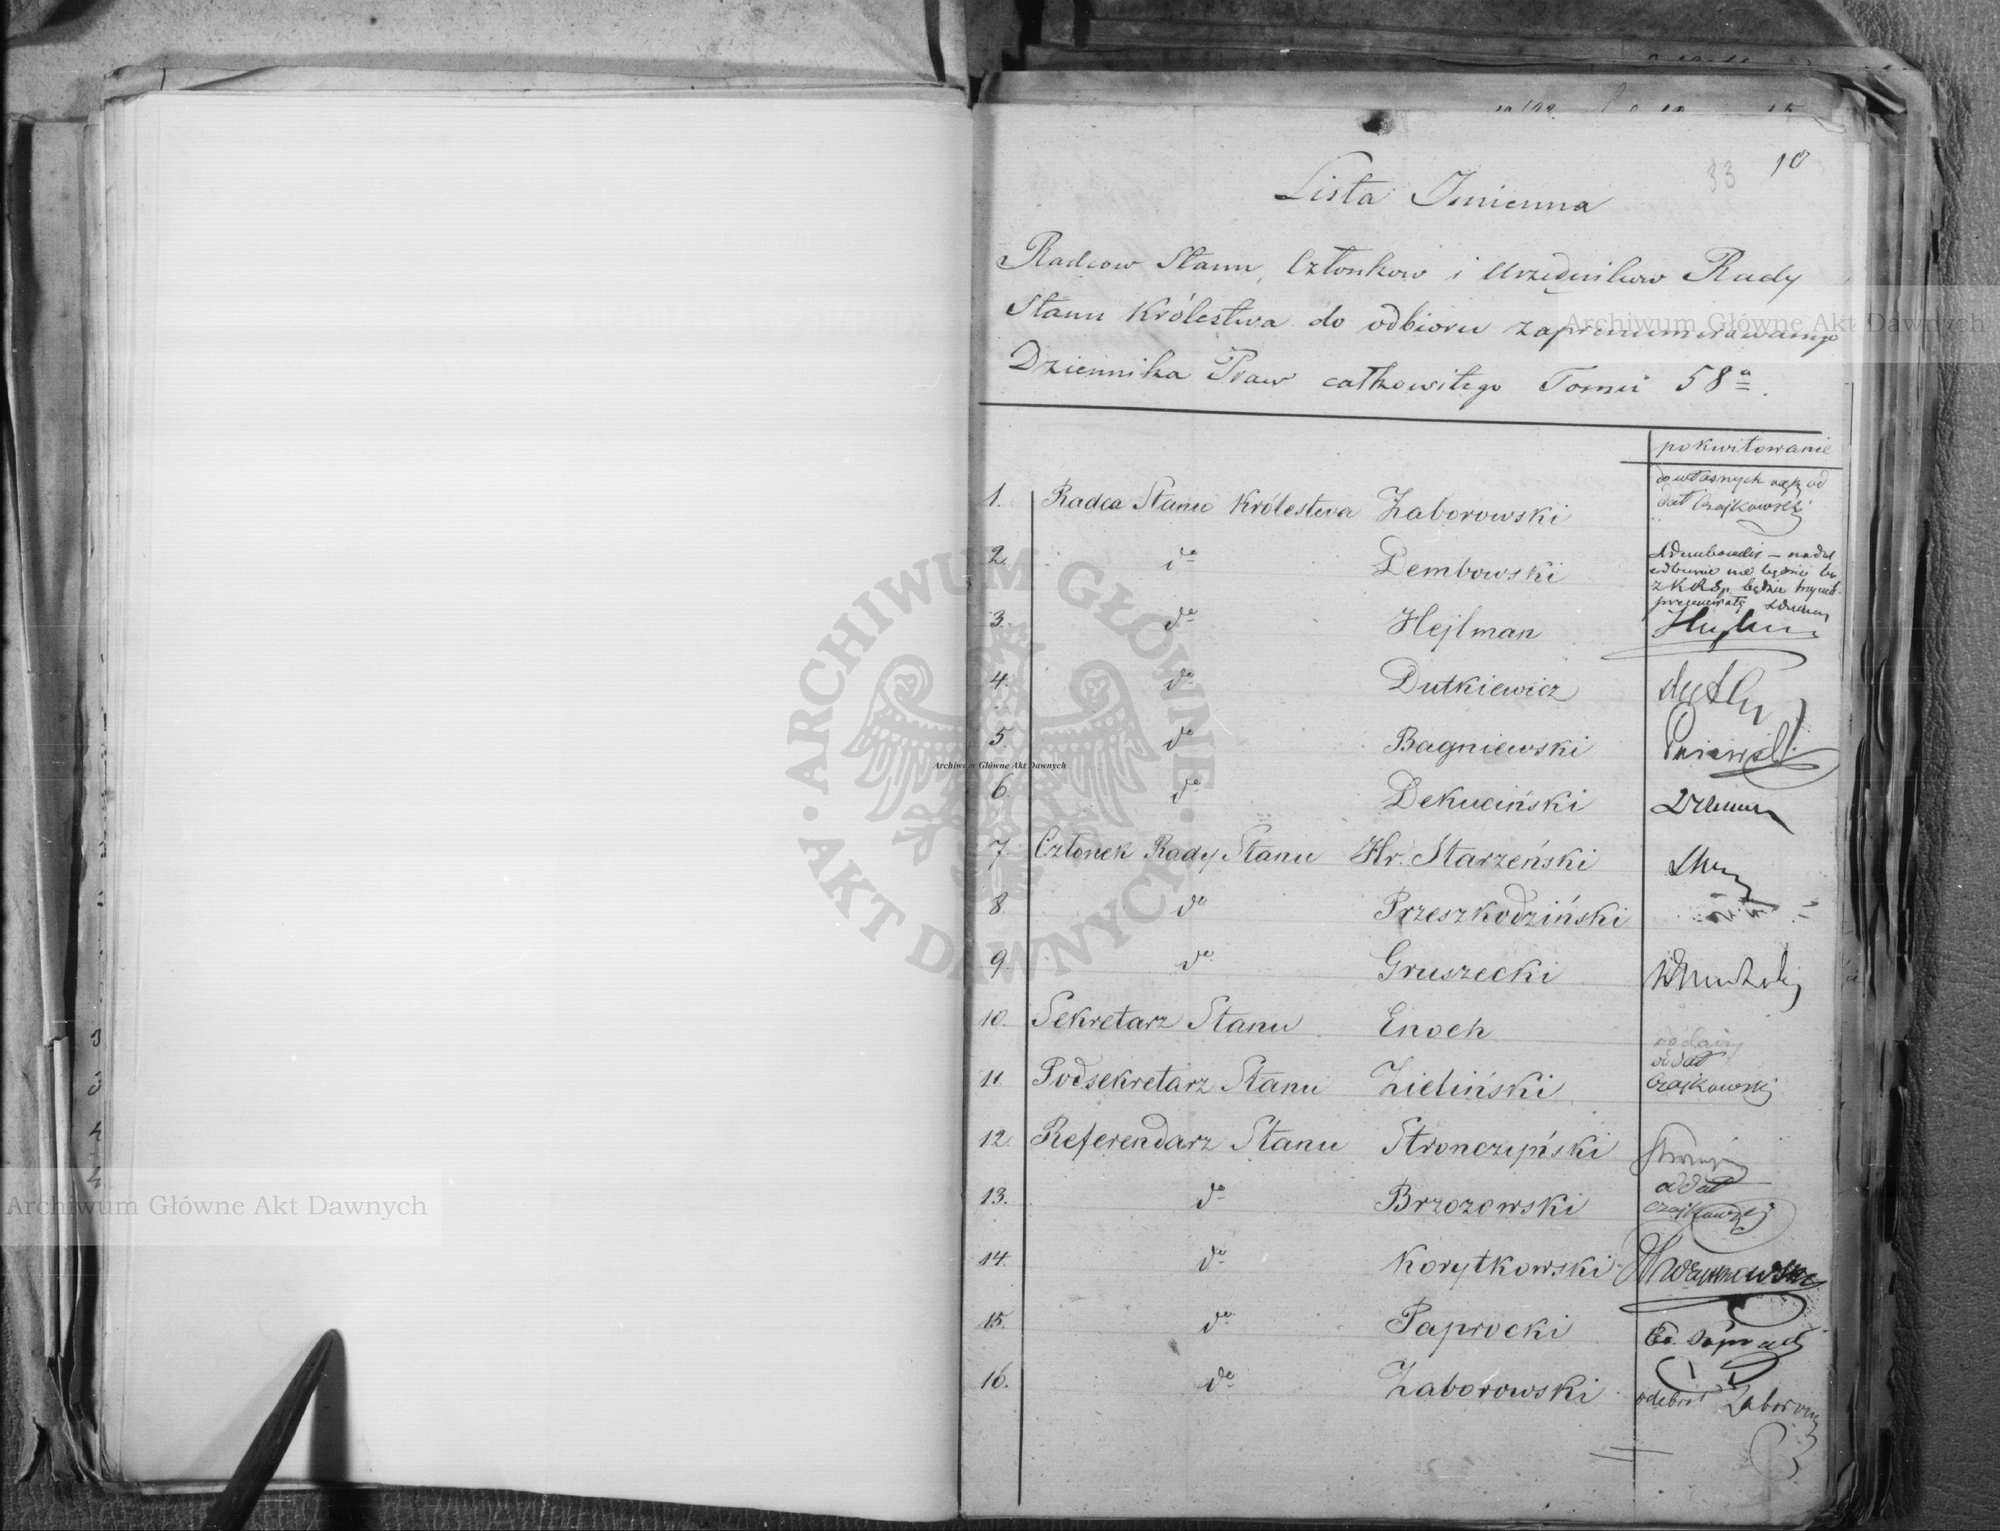 33 10
Lista Imienna
Radcow Stanu, Członkow i Urzędnikow Rady
Stanu Królestwa do odbioru zaprenumerowanego
Dziennika Praw całkowitego Tomu 58º.
pokwitowanie
1. Radca Stanu Królestwa Zaborowski do własnych rąk od
dał Czajkowski
2. do Dembowski
3. do Hejlman
4. do Dutkiewicz
5. do Bagniewski
6. do Dekuciński
7. Członek Rady Stanu Hr. Starzeński
8 do Przeszkodziński
9. do Gruszecki
10. Sekretarz Stanu Enoch
11. Podsekretarz Stanu Zieliński oddał
Czajkowski
12. Referendarz Stanu Stronczyński
13. do Brzozowski oddał
Czajkowski
14. do Korytkowski
15. do Paprocki
16. do Zaborowski odebrał Zaborow
Archiwum Główne Akt Dawnych
Archiwum Główne Akt Dawnych
Archiwum Główne Akt Dawnych
ARCHIWUM GŁÓWNE · AKT DAWNYCH ·